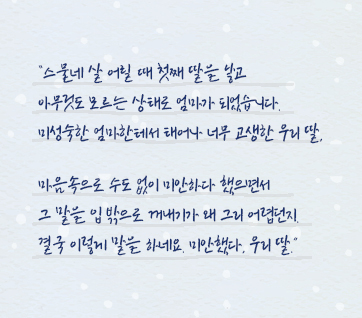 "스물네 살 어릴 때 첫째 딸을 낳고
아무것도 모르는 상태로 엄마가 되었습니다.
미성숙한 엄마한테서 태어나 너무 고생한 우리 딸,
마음속으로 수도 없이 미안하다 했으면서
그 말을 입 밖으로 꺼내기가 왜 그리 어렵던지.
결국 이렇게 말을 하네요. 미안했다, 우리 딸."